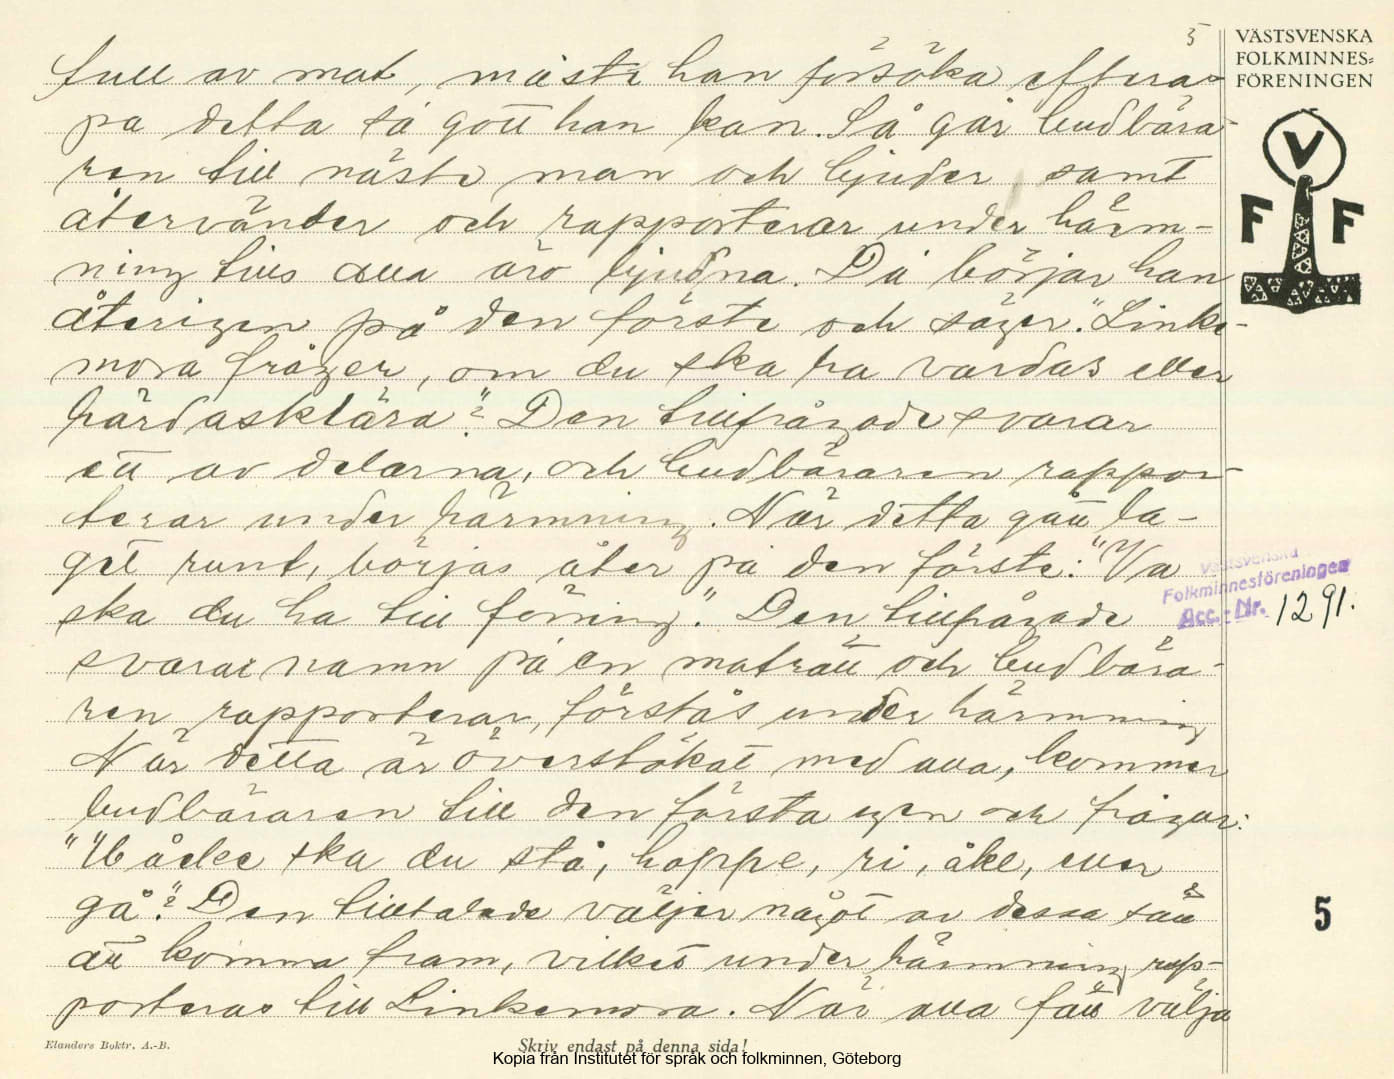 5
VÄSTSVENSKA
FOLKMINNES=
FÖRENINGEN
full av mat, måste han försöka eftera-
pa detta så gott han kan. Så går budbära-
ren till näste man och bjuder samt
återvänder och rapporterar under härm-
ning tills alla äro bjudna. Då börjar han
återigen på den förste och säger: "Linke-
mora fråger, om du ska ha vardas eller
härdasklära"? Den tillfrågade svarar
ett av delarna, och budbäraren rappor-
terar under härmning. När detta gått la-
get runt, börjas åter på den förste: "Va
ska du ha till föring". Den tillfrågade
svarar namn på en maträtt och budbära-
ren rapporterar, förstås under härmning
När detta är överstökat med alla, kommer
budbäraren till den första igen och frågar:
"Håcke ska du stå, hoppe, ri, åke, eller
gå"? Den tilltalade väljer något av dessa sätt
att komma fram, vilket under härmning rap-
porteras till Linkemora. När alla fått välja
V
F F
Västsvenska
Folkminnesföreningen
Acc.-Nr. 1291.
5
Elanders Boktr. A.-B.
Skriv endast på denna sida!
Kopia från Institutet för språk och folkminnen, Göteborg